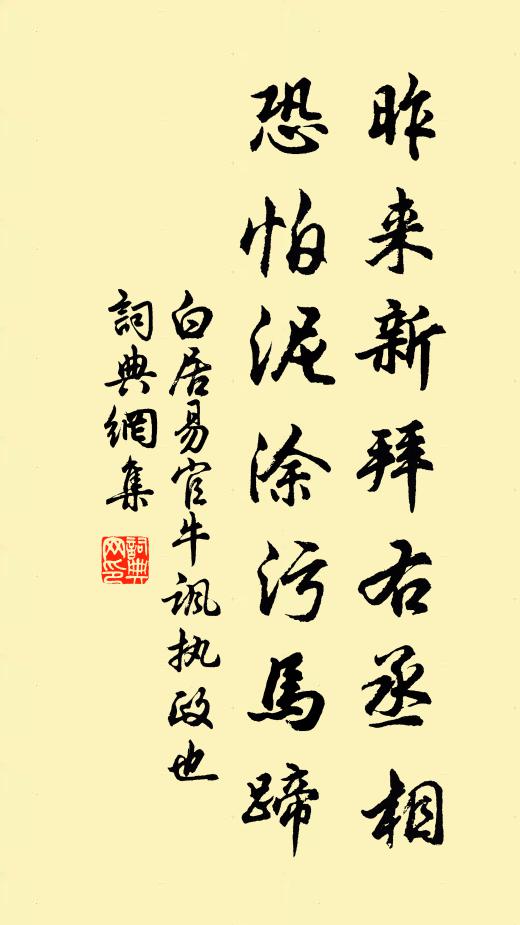 昨来新拜右丞相
恐怕泥涂污馬蹄
白居易官牛讽执政也
詞典網集
詞典网印